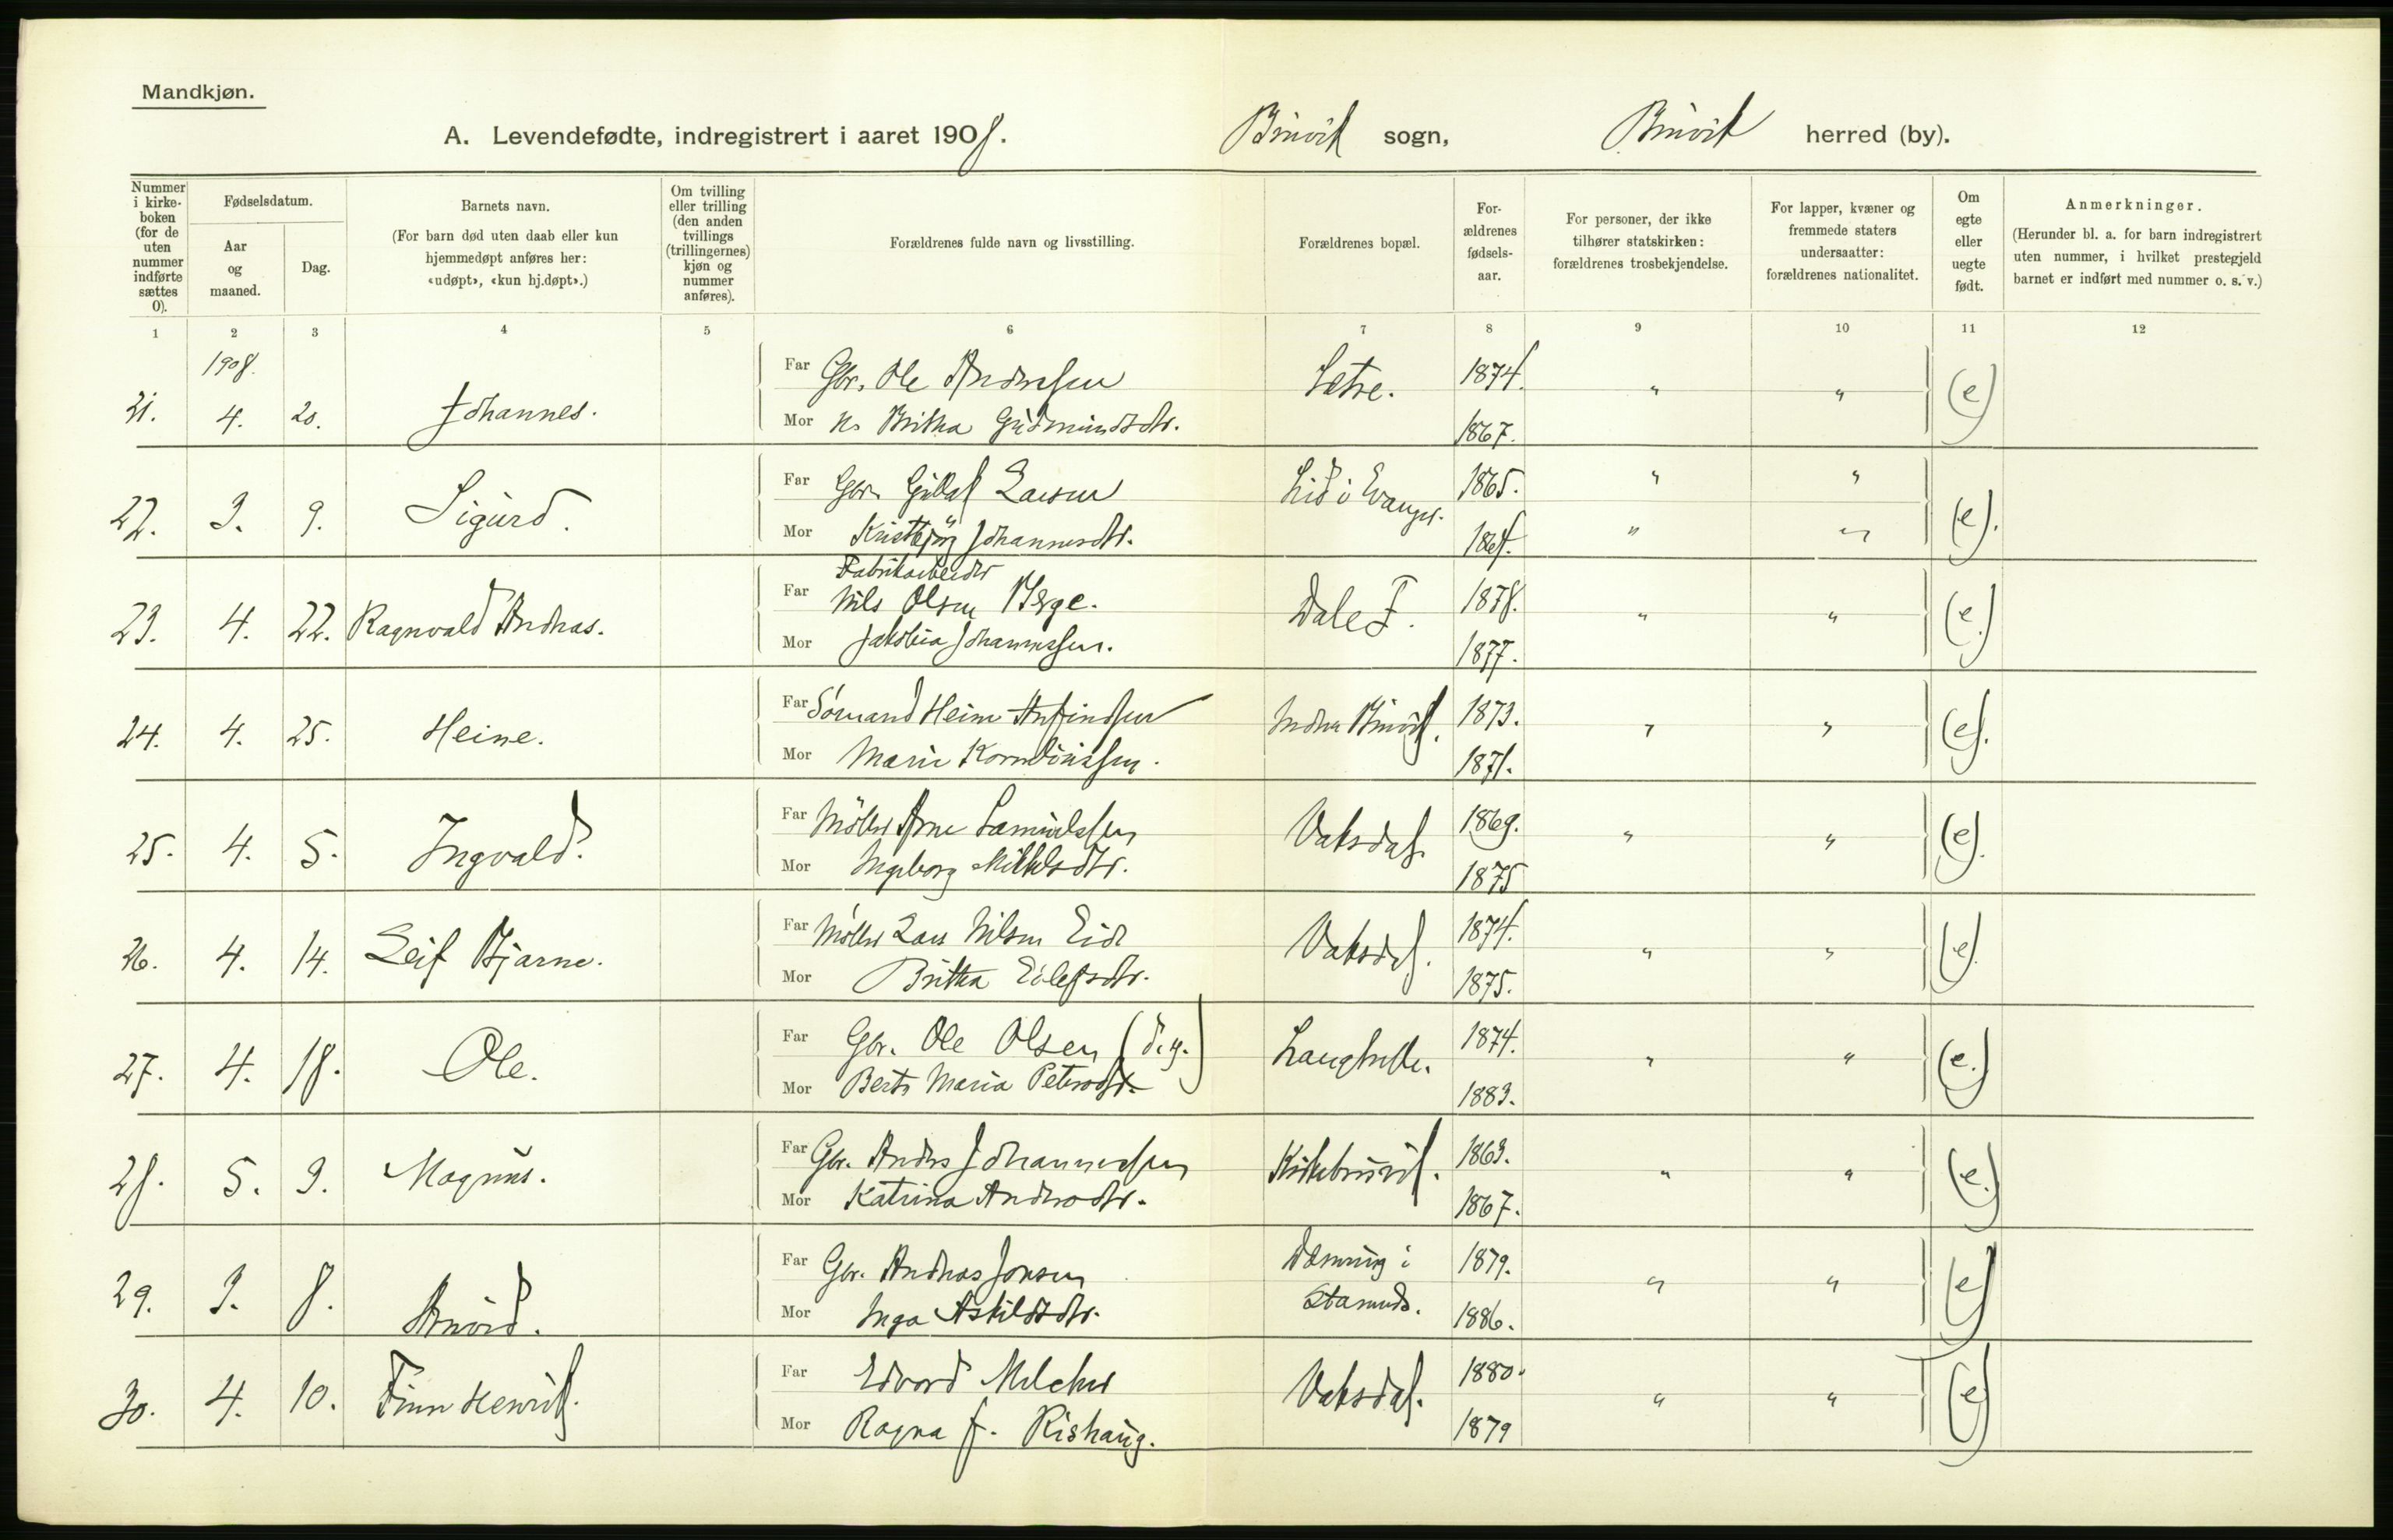 Mandkjøn.
A. Levendefødte, indregistrert i aaret 1908. Bruvik sogn, Bruvik herred (by).
Nummer i kirke-boken (for de uten nummer indførte sættes 0).
Fødselsdatum.
Aar og maaned.
Dag.
Barnets navn.
(For barn død uten daab eller kun hjemmedøpt anføres her: «udøpt», «kun hj.døpt».)
Om tvilling eller trilling (den anden tvillings (trillingernes) kjøn og nummer anføres).
Forældrenes fulde navn og livsstilling.
Forældrenes bopæl.
For-ældrenes fødsels-aar.
For personer, der ikke tilhører statskirken: forældrenes trosbekjendelse.
For lapper, kvæner og fremmede staters undersaatter: forældrenes nationalitet.
Om egte eller uegte født.
Anmerkninger.
(Herunder bl. a. for barn indregistrert uten nummer, i hvilket prestegjeld barnet er indført med nummer o. s. v.)
1 2 3 4 5 6 7 8 9 10 11 12
1908.
Far Gbr. Ole Andersen Sætre. 1874.
21. 4. 20. Johannes. " " (e)
Mor Britha Gudmundsdtr. 1867.
Far Gbr. Larsen Lid i Evanger. 1865. " "
22. 3. 9. Sigurd. (e).
Mor Kristbjørg Johannesdtr. " "
Fabrikarbeider
Far Nils Olsen Berge. Dale F. 1878.
23. 4. 22. Ragnvald Andreas. " " (e.)
Mor Jakobia Johannessen. 1877.
Far Sømand Heine Anfindsen Indre Bruvik. 1873.
24. 4. 25. Heine. " " (e).
Mor Marie 1871.
Far Møller Arne Samuelsen Vaksdal. 1869.
25. 4. 5. Ingvald. " " (e).
Mor Ingeborg Mikkelsdtr. 1875
Far Møller Lars Nilsen Eide Vaksdal. 1874.
26. 4. 14. Leif Bjarne. " " (e).
Mor Britha Eilefsdtr. 1875.
Far Gbr. Ole Olsen (d.y.) Langhelle. 1874.
27. 4. 18. Ole. " " (e.)
Mor Berta Maria Petersdtr. 1883.
Far Gbr. Anders Johannessen Kirkebruvik. 1863.
28. 5. 3. Magnus. " " (e.)
Mor Katrina Andersdtr. 1867.
Far Gbr. Andreas Jonsen i 1879.
29. 3. 8. " " (e)
Mor Inga Askildsdtr. Stamnes. 1886.
Far Edvard Melcher Vaksdal. 1880.
30. 4. 10. Finn Henrik. " " (e)
Mor Ragna J. Rishaug. 1879